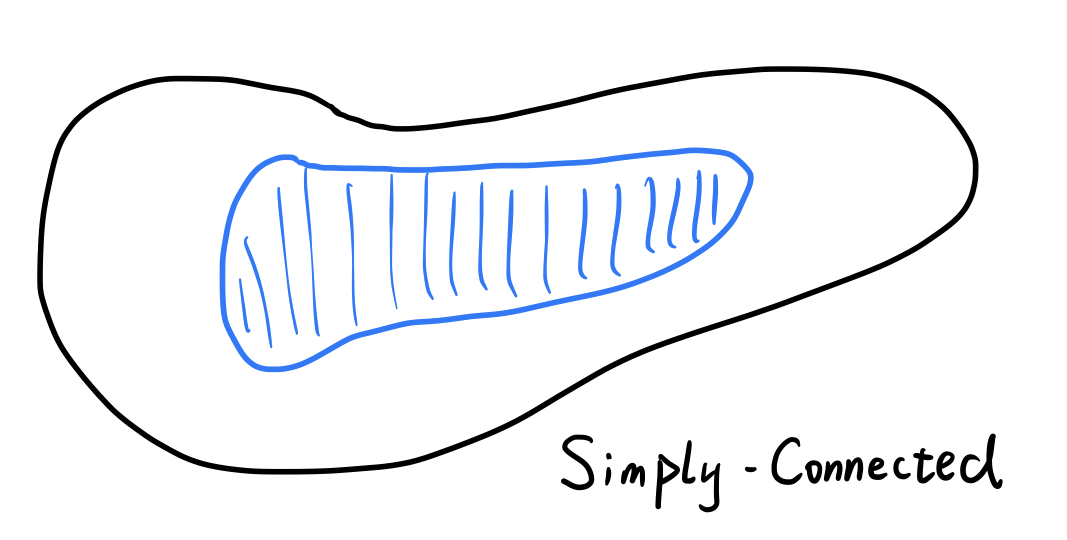 Simply - Connected